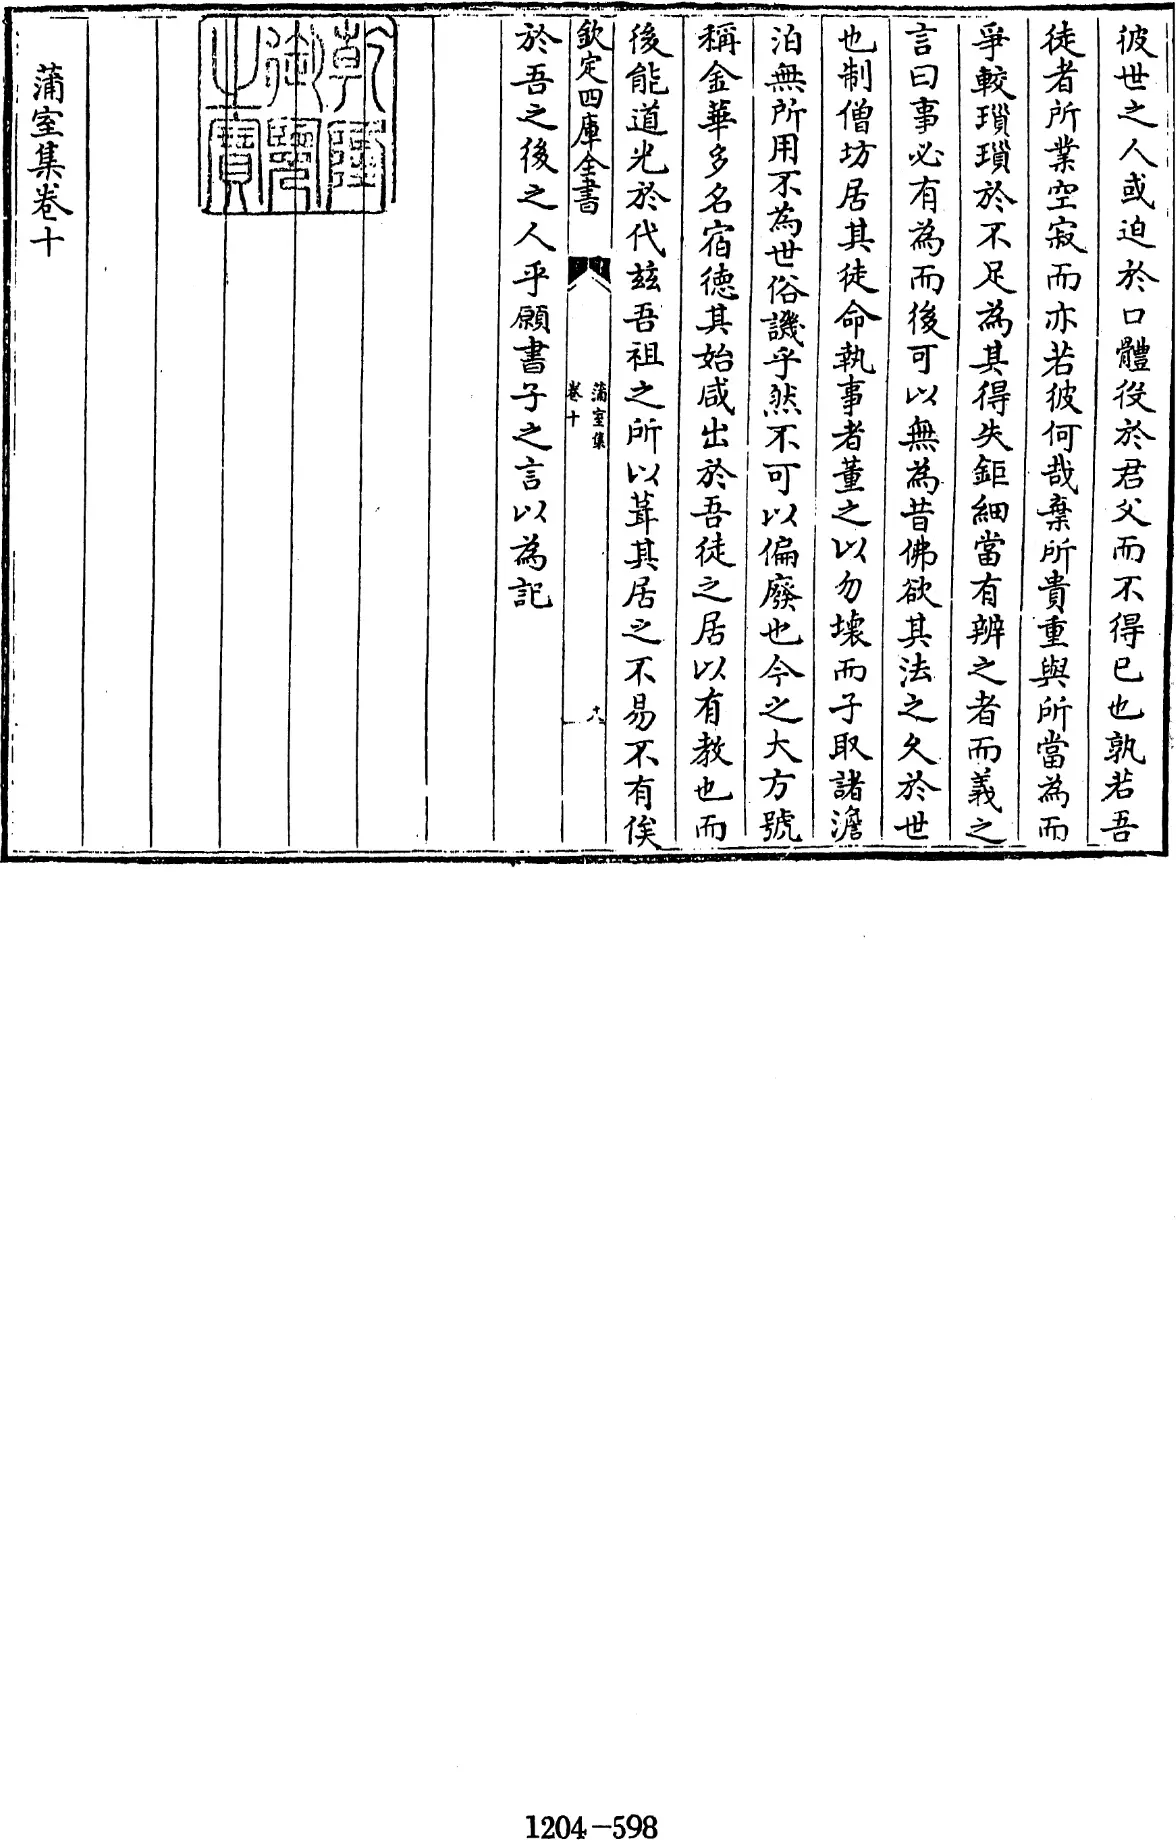 彼世之人或迫於口體役於君父而不得已也孰若吾
徒者所業空寂而亦若彼何哉棄所貴重與所當為而
爭較瑣瑣於不足為其得失鉅細當有辨之者而義之
言曰事必有為而後可以無為昔佛欲其法之久於世
也制僧坊居其徒命執事者董之以勿壞而子取諸澹
泊無所用不為世俗譏乎然不可以偏廢也今之大方號
稱金華多名宿德其始咸出於吾徒之居以有教也而
後能道光於代兹吾祖之所以葺其居之不易不有俟
欽定四庫全書
蒲室集
卷十
十八
於吾之後之人乎願書子之言以為記
乾隆
御覽
之寶
蒲室集卷十
1204-598